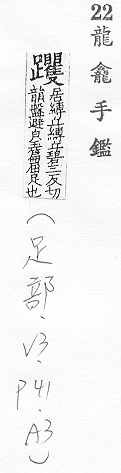 22 龍龕手鑑
躩
居縛丘縛丘碧三反切
韻盤避皃屈足也
(足部、V3、P41、A3)